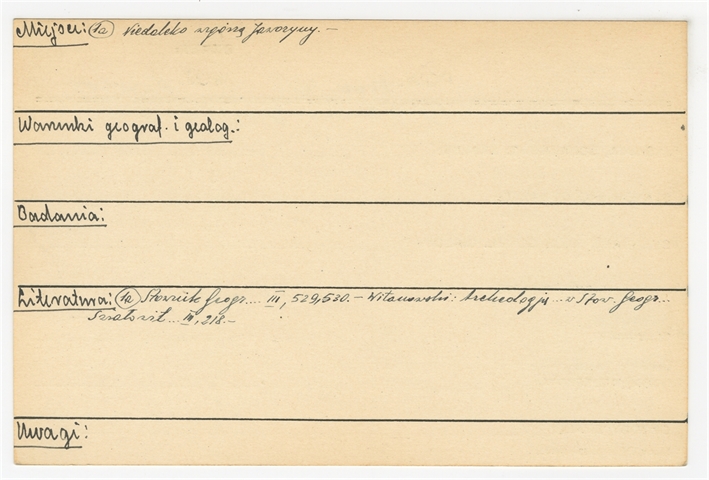 Miejsce: 1a Niedaleko wzgórza Jaworzyny. –
Warunki geograf. i geolog.:
Badania:
Literatura: 1a Słownik Geogr.... III, 529, 530. – Witanowski: Archeologja ... w Słow. Geogr...
Światowit... III, 218. –
Uwagi: